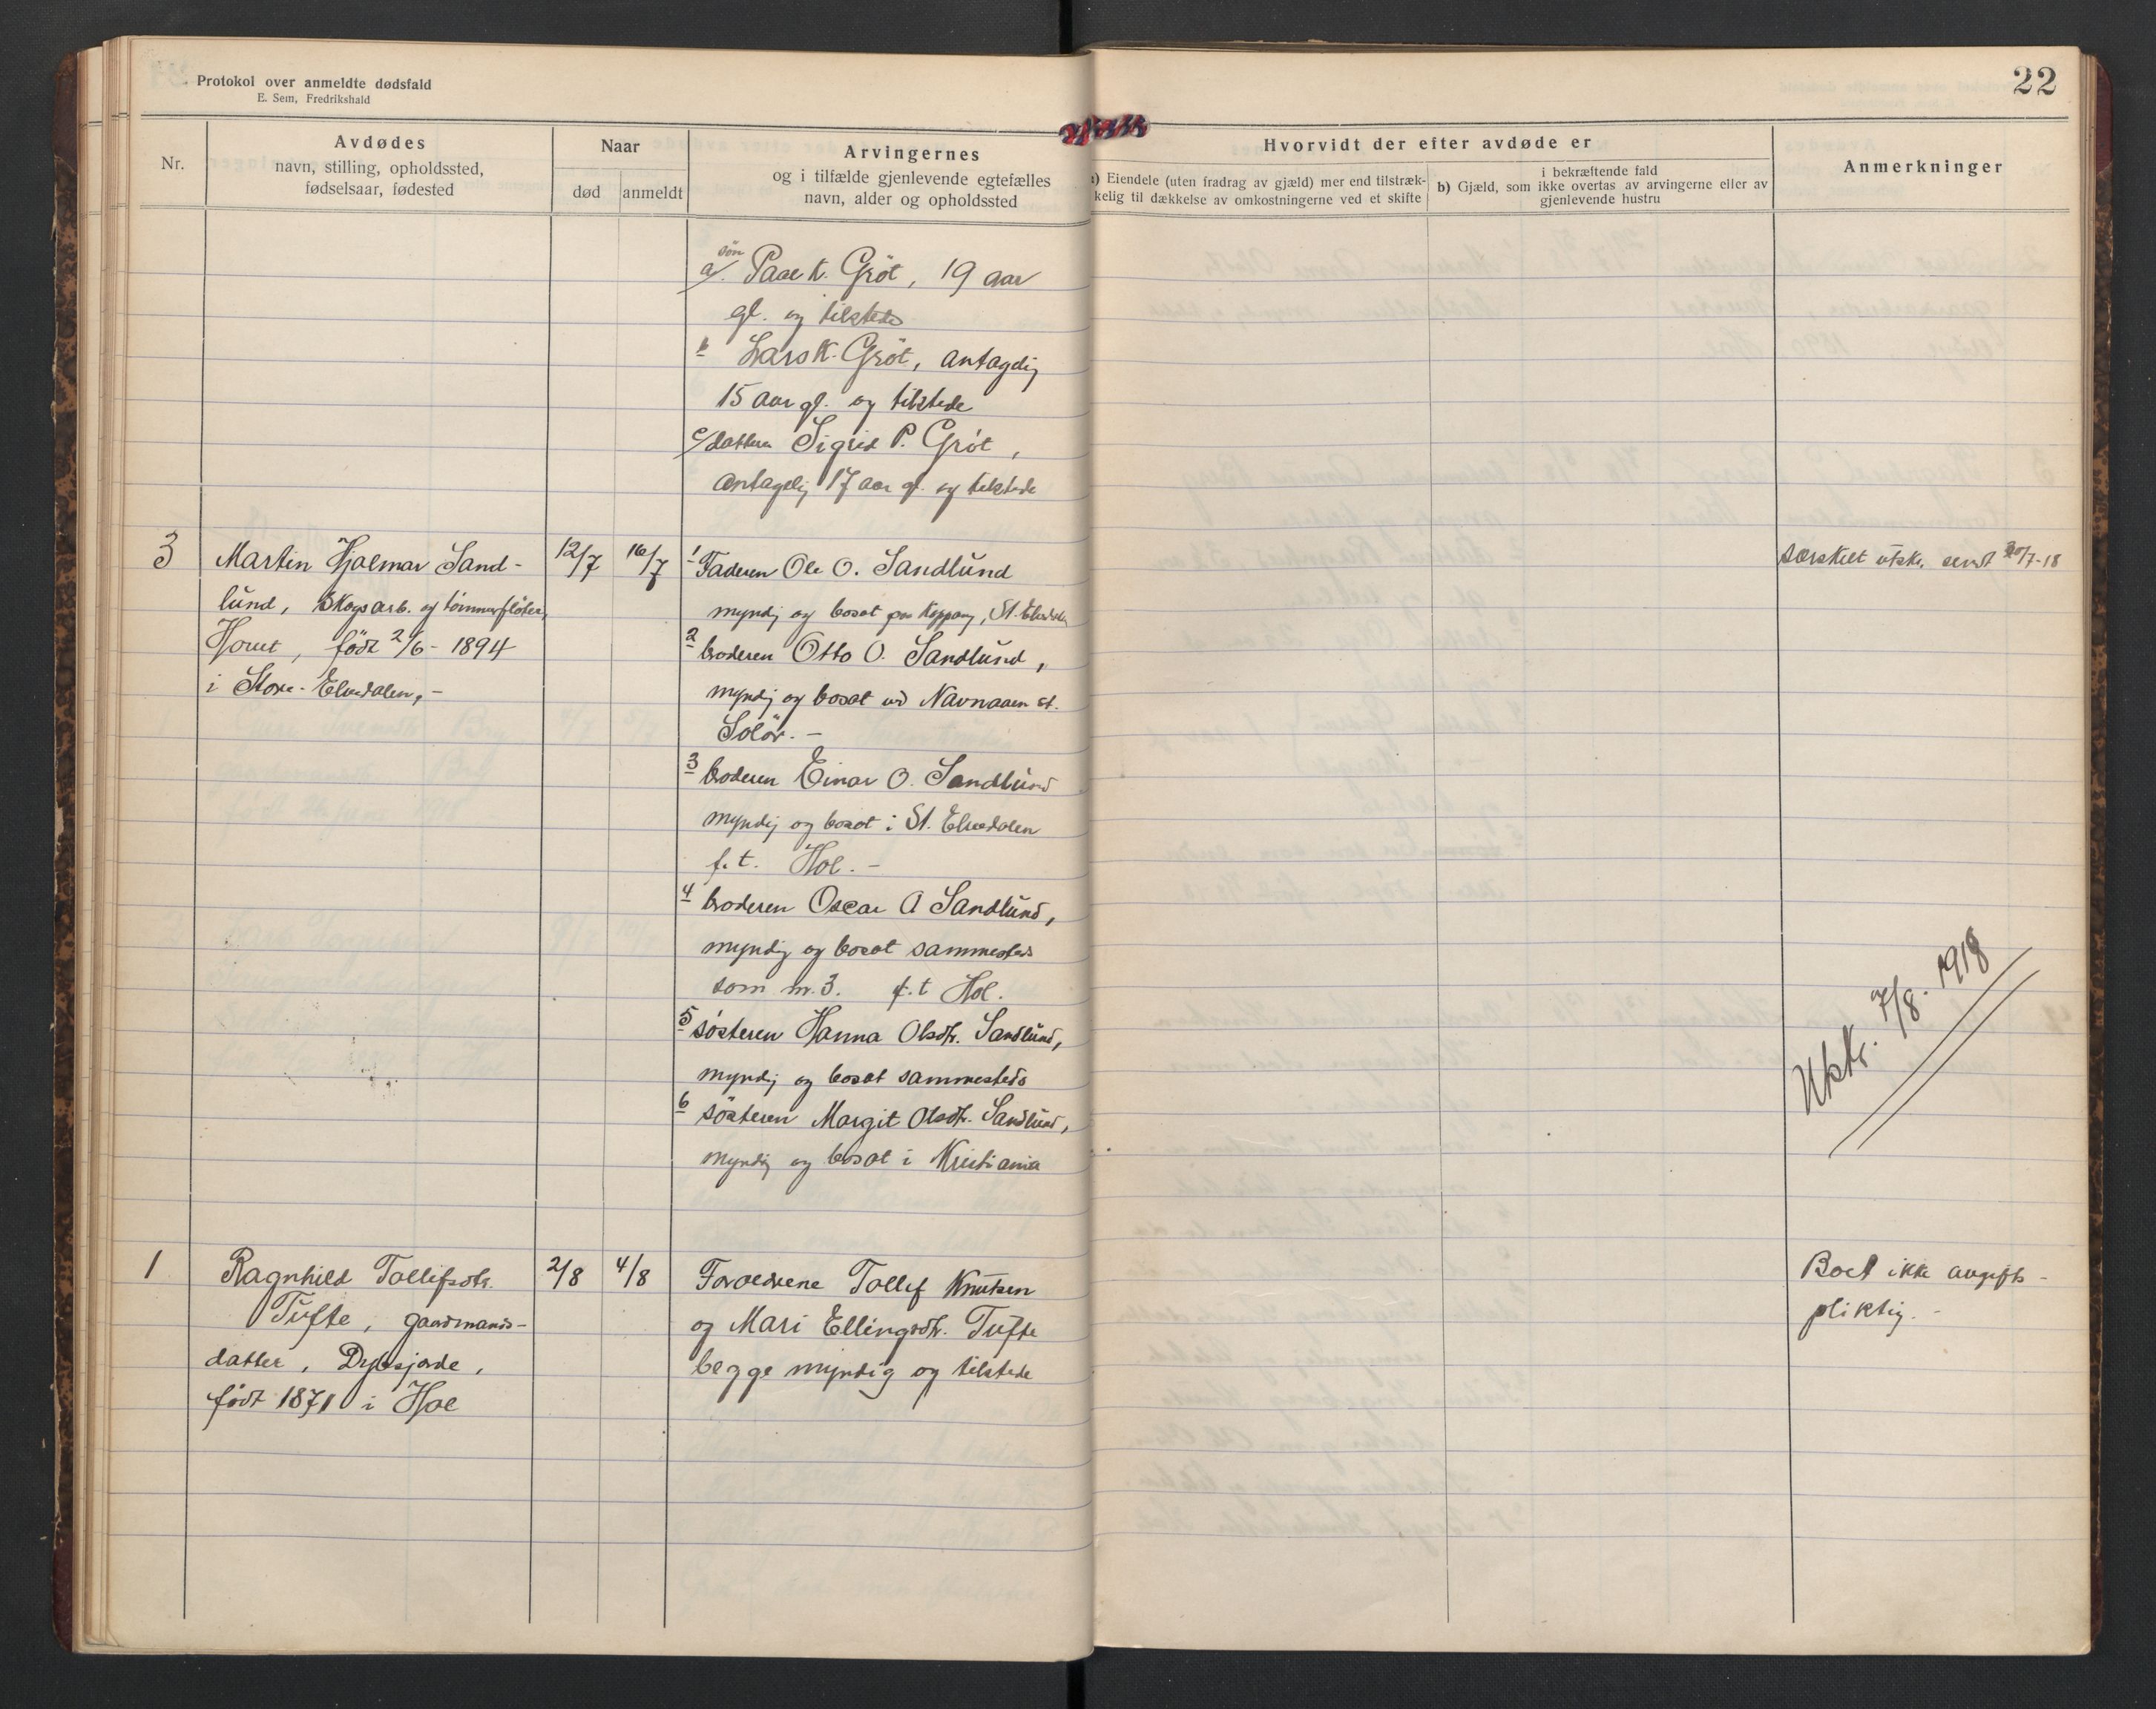 Protokol over anmeldte dødsfald
E. Sem, Fredrikshald
22
Nr.
Avdødes
navn, stilling, opholdssted,
fødselsaar, fødested
Naar
død
anmeldt
Arvingernes
og i tilfælde gjenlevende egtefælles
navn, alder og opholdssted
Hvorvidt der efter avdøde er
a) Eiendele (uten fradrag av gjæld) mer end tilstræk-
kelig til dækkelse av omkostningerne ved et skifte
i bekræftende fald
b) Gjæld, som ikke overtas av arvingerne eller av
gjenlevende hustru
Anmerkninger
søn
a/. Paal K. Grøt, 19 aar
gl. og tilstede
b Lars K. Grøt, antagelig
15 aar gl. og tilstede
c/ datteren Sigrid P. Grøt,
antagelig 17 aar gl. og tilstede
3
Martin Hjalmar Sand-
lund, skogsarb. og tømmerfløter,
født 2/6 - 1894
i Store-Elvedalen, -
12/7
16/7
1 Faderen Ole O. Sandlund
myndig og bosat paa Koppang, St. Elvedalen
2 broderen Otto O. Sandlund,
myndig og bosat ved Navnaaen st.
Solør. -
3 broderen Einar O. Sandlund
myndig og bosat i St. Elvedalen
f. t. Hol. -
4 broderen Oscar A Sandlund,
myndig og bosat sammesteds
som nr. 3. f. t Hol.
5 søsteren Hanna Olsdtr. Sandlund,
myndig og bosat sammesteds
6 søsteren Margit Olsdtr. Sandlund,
myndig og bosat i Kristiania
særskilt utskr. sendt 20/7-18
Utskr. 7/8. 1918
1
Ragnhild Tollefsdtr.
Tufte, gaardmands-
datter,
født 1871 i Hol
2/8
4/8
Forældrene Tollef Knutsen
og Mari Ellingsdtr. Tufte
begge myndig og tilstede
Boet ikke avgifts-
pliktig. -